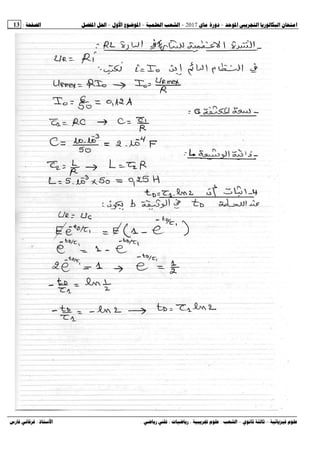 امتحان البكالوريا التجريبي الموحد - دورة ماي 2017 - الشعب العلمية - الموضوع الأول - الحل المفصل الصفحة 13
الشدة الأعظمية للتيار في الدارة RL :
u_R = R i
في النظام الدائم i = I₀ إذن نكتب :
U_Rmax = R I₀ → I₀ = U_Rmax / R
I₀ = 6 / 50 = 0,12 A
- سعة المكثفة C :
τ₁ = RC → C = τ₁ / R
C = 10.10⁻³ / 50 = 2.10⁻⁴ F
- ذاتية الوشيعة L :
τ₂ = L / R → L = τ₂ R
L = 5.10⁻³ × 50 = 0,25 H
4- إثبات أن t_D = τ₁.ln2
عند اللحظة t_D في الوثيقة b يكون :
u_R = u_C
E e^(-t_D/τ₁) = E (1 - e^(-t_D/τ₁))
e^(-t_D/τ₁) = 1 - e^(-t_D/τ₁)
2e^(-t_D/τ₁) = 1 → e^(-t_D/τ₁) = 1/2
- t_D / τ₁ = ln 1/2
- t_D / τ₁ = - ln 2 → t_D = τ₁ ln2
علوم فيزيائية - ثالثة ثانوي - الشعب : علوم تجريبية ، رياضيات ، تقني رياضي الأستاذ : فرقاني فارس